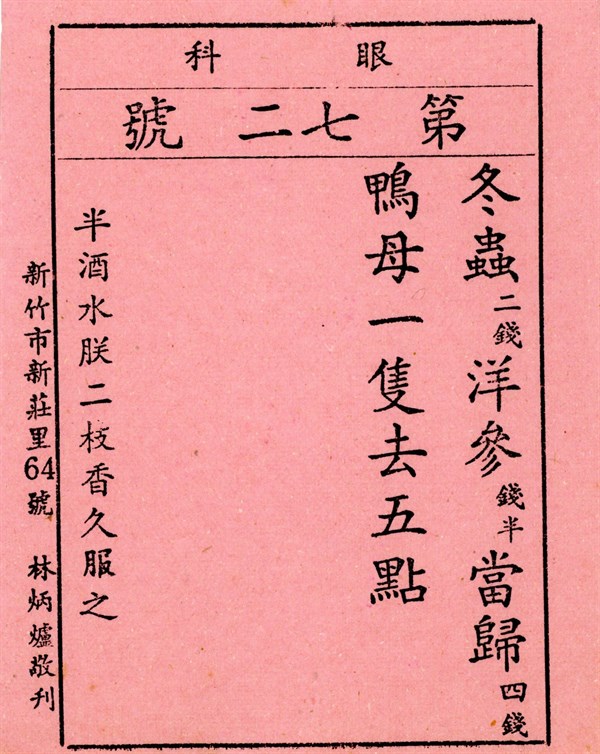 眼科
第七二號
冬蟲二錢洋參錢半當歸四錢
鴨母一隻去五點
半酒水朕二枝香久服之
新竹市新莊里64號 林炳爐敬刊